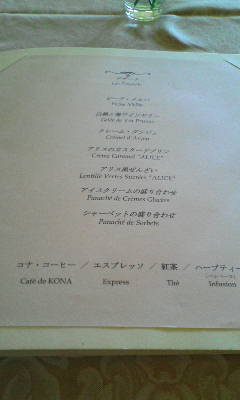 デザート
Les Desserts
ピーチ・メルバ
Pêche Melba
白桃と梅ワインゼリー
Gelée de Vin Prunes
クレーム・ダンジュ
Crémet d'Anjou
アリスのカスタードプリン
Crème Caramel "ALICE"
アリス風ぜんざい
Lentille Vertes Sucrées "ALICE"
アイスクリームの盛り合わせ
Panaché de Crèmes Glacées
シャーベットの盛り合わせ
Panaché de Sorbets
コナ・コーヒー / エスプレッソ / 紅茶 / ハーブティー
Café de KONA Express Thé Infusion